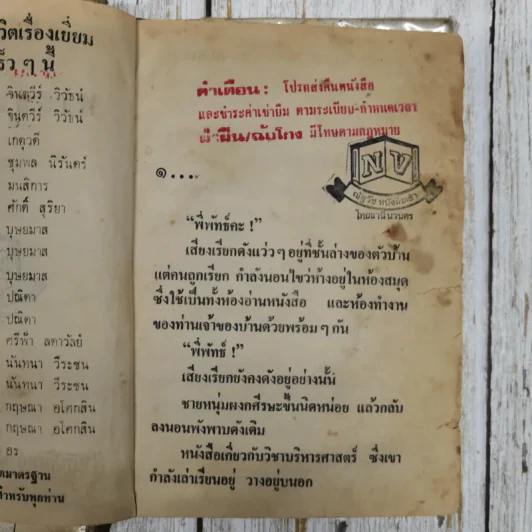 วิตเรื่องเยี่ยม
ร็ว ๆ นี้
จินตวีร์ วิวัธน์
จินตวีร์ วิวัธน์
เกตุวดี
ชุมพล นิรันดร์
มนสิการ
ศักดิ์ สุริยา
บุษยมาส
บุษยมาส
บุษยมาส
ปณิตา
ปณิตา
ศรีฟ้า ลดาวัลย์
นันทนา วีระชน
นันทนา วีระชน
กฤษณา อโศกสิน
กฤษณา อโศกสิน
อร
ตมาตรฐาน
สำหรับทุกท่าน
คำเตือน : โปรดส่งคืนหนังสือ
และชำระค่าเช่ายืม ตามระเบียบ-กำหนดเวลา
ฝ่าฝืน/ฉ้อโกง มีโทษตามกฎหมาย
NV
หนังสือเช่า
๑...
“พี่พัทธ์คะ !”
เสียงเรียกดังแว่ว ๆ อยู่ที่ชั้นล่างของตัวบ้าน
แต่คนถูกเรียก กำลังนอนไขว่ห้างอยู่ในห้องสมุด
ซึ่งใช้เป็นทั้งห้องอ่านหนังสือ และห้องทำงาน
ของท่านเจ้าของบ้านด้วยพร้อม ๆ กัน
“พี่พัทธ์ !”
เสียงเรียกยังคงดังอยู่อย่างนั้น
ชายหนุ่มผงกศีรษะขึ้นนิดหน่อย แล้วกลับ
ลงนอนพังพาบดังเดิม
หนังสือเกี่ยวกับวิชาบริหารศาสตร์ ซึ่งเขา
กำลังเล่าเรียนอยู่ วางอยู่บนอก